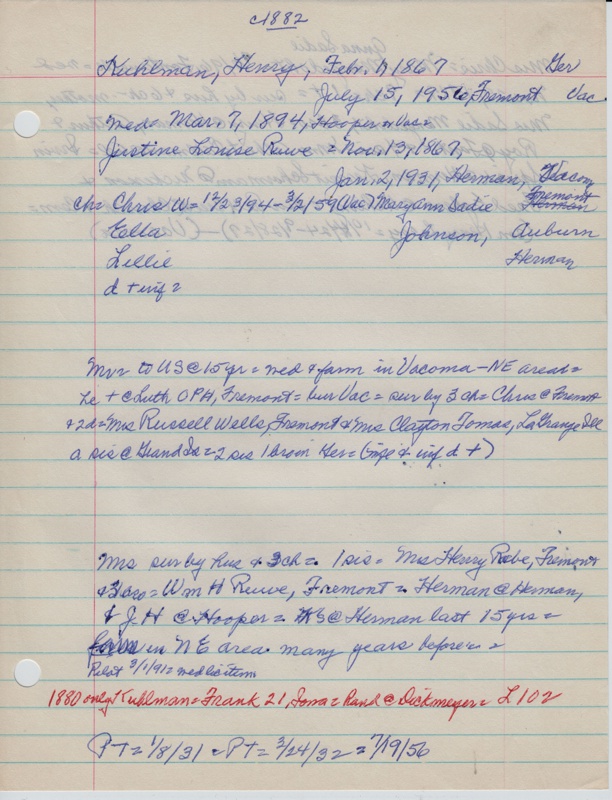 c1882
Kuhlman, Henry, Febr. 1867 Ger
July 15, 1956, Fremont Vac.
med= Mar. 7, 1894, Hooper Vac=
Justine Louise Ruwe = Nov. 13, 1867,
Jan. 2, 1931, Herman,
ch= Chris W= 12/23/94-3/2/59 (Vac) Mary Ann Sadie Fremont Herman
Etta Johnson, Auburn
Lillie Herman
d + inf =
Mvr to US@15yr= med & farm in Vacoma-NE area=
he + @ Luth OPH, Fremont= bur Vac= sur by 3 ch= Chris @ Fremont
+2d=Mrs Russell Wells, Fremont & Mrs Clayton Tomas, LaGrange Ill
a sis @ Grand Is=2 sis 1 bro in Ger= (wife & inf d +)
Mrs sur by hus + 3ch= 1 sis= Mrs Henry Rebe, Fremont
+3 bro= Wm H Ruwe, Fremont= Herman @ Herman,
& J.H @ Hooper= @ Herman last 15yrs=
farm in NE area many years before=
Pilot 3/1/91= med lic item
1880 only Kuhlman= Frank 21, Iowa= hand @ Dickmeyer= L102
PT= 1/8/31 PT= 3/24/32 = 7/19/56